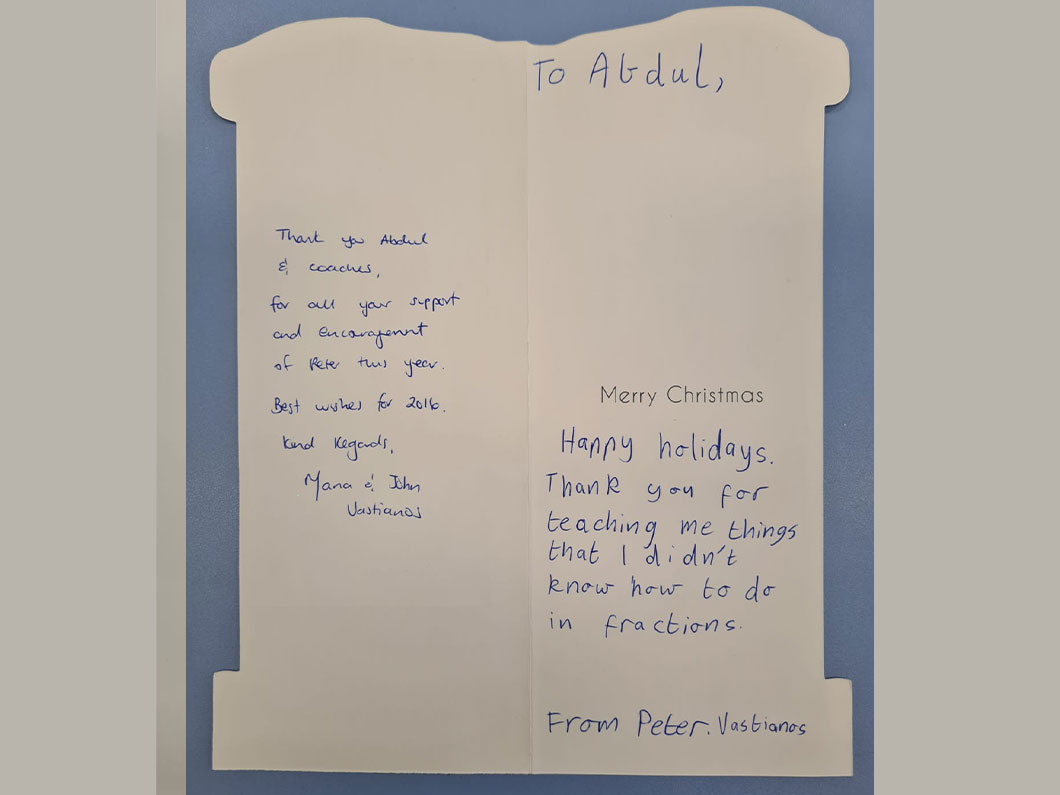 Thank you Abdul
& coaches,
for all your support
and encouragement
of Peter this year.
Best wishes for 2016.
Kind Regards,
Maria & John
Vastianos
To Abdul,
Merry Christmas
Happy holidays.
Thank you for
teaching me things
that I didn't
know how to do
in fractions.
From Peter. Vastianos